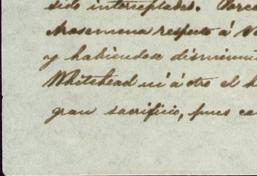 sido interceptados.
Mosornna respecto á
y habiendose disminu
Whitehead ni á otro el h
gran sacrificio, pues ca